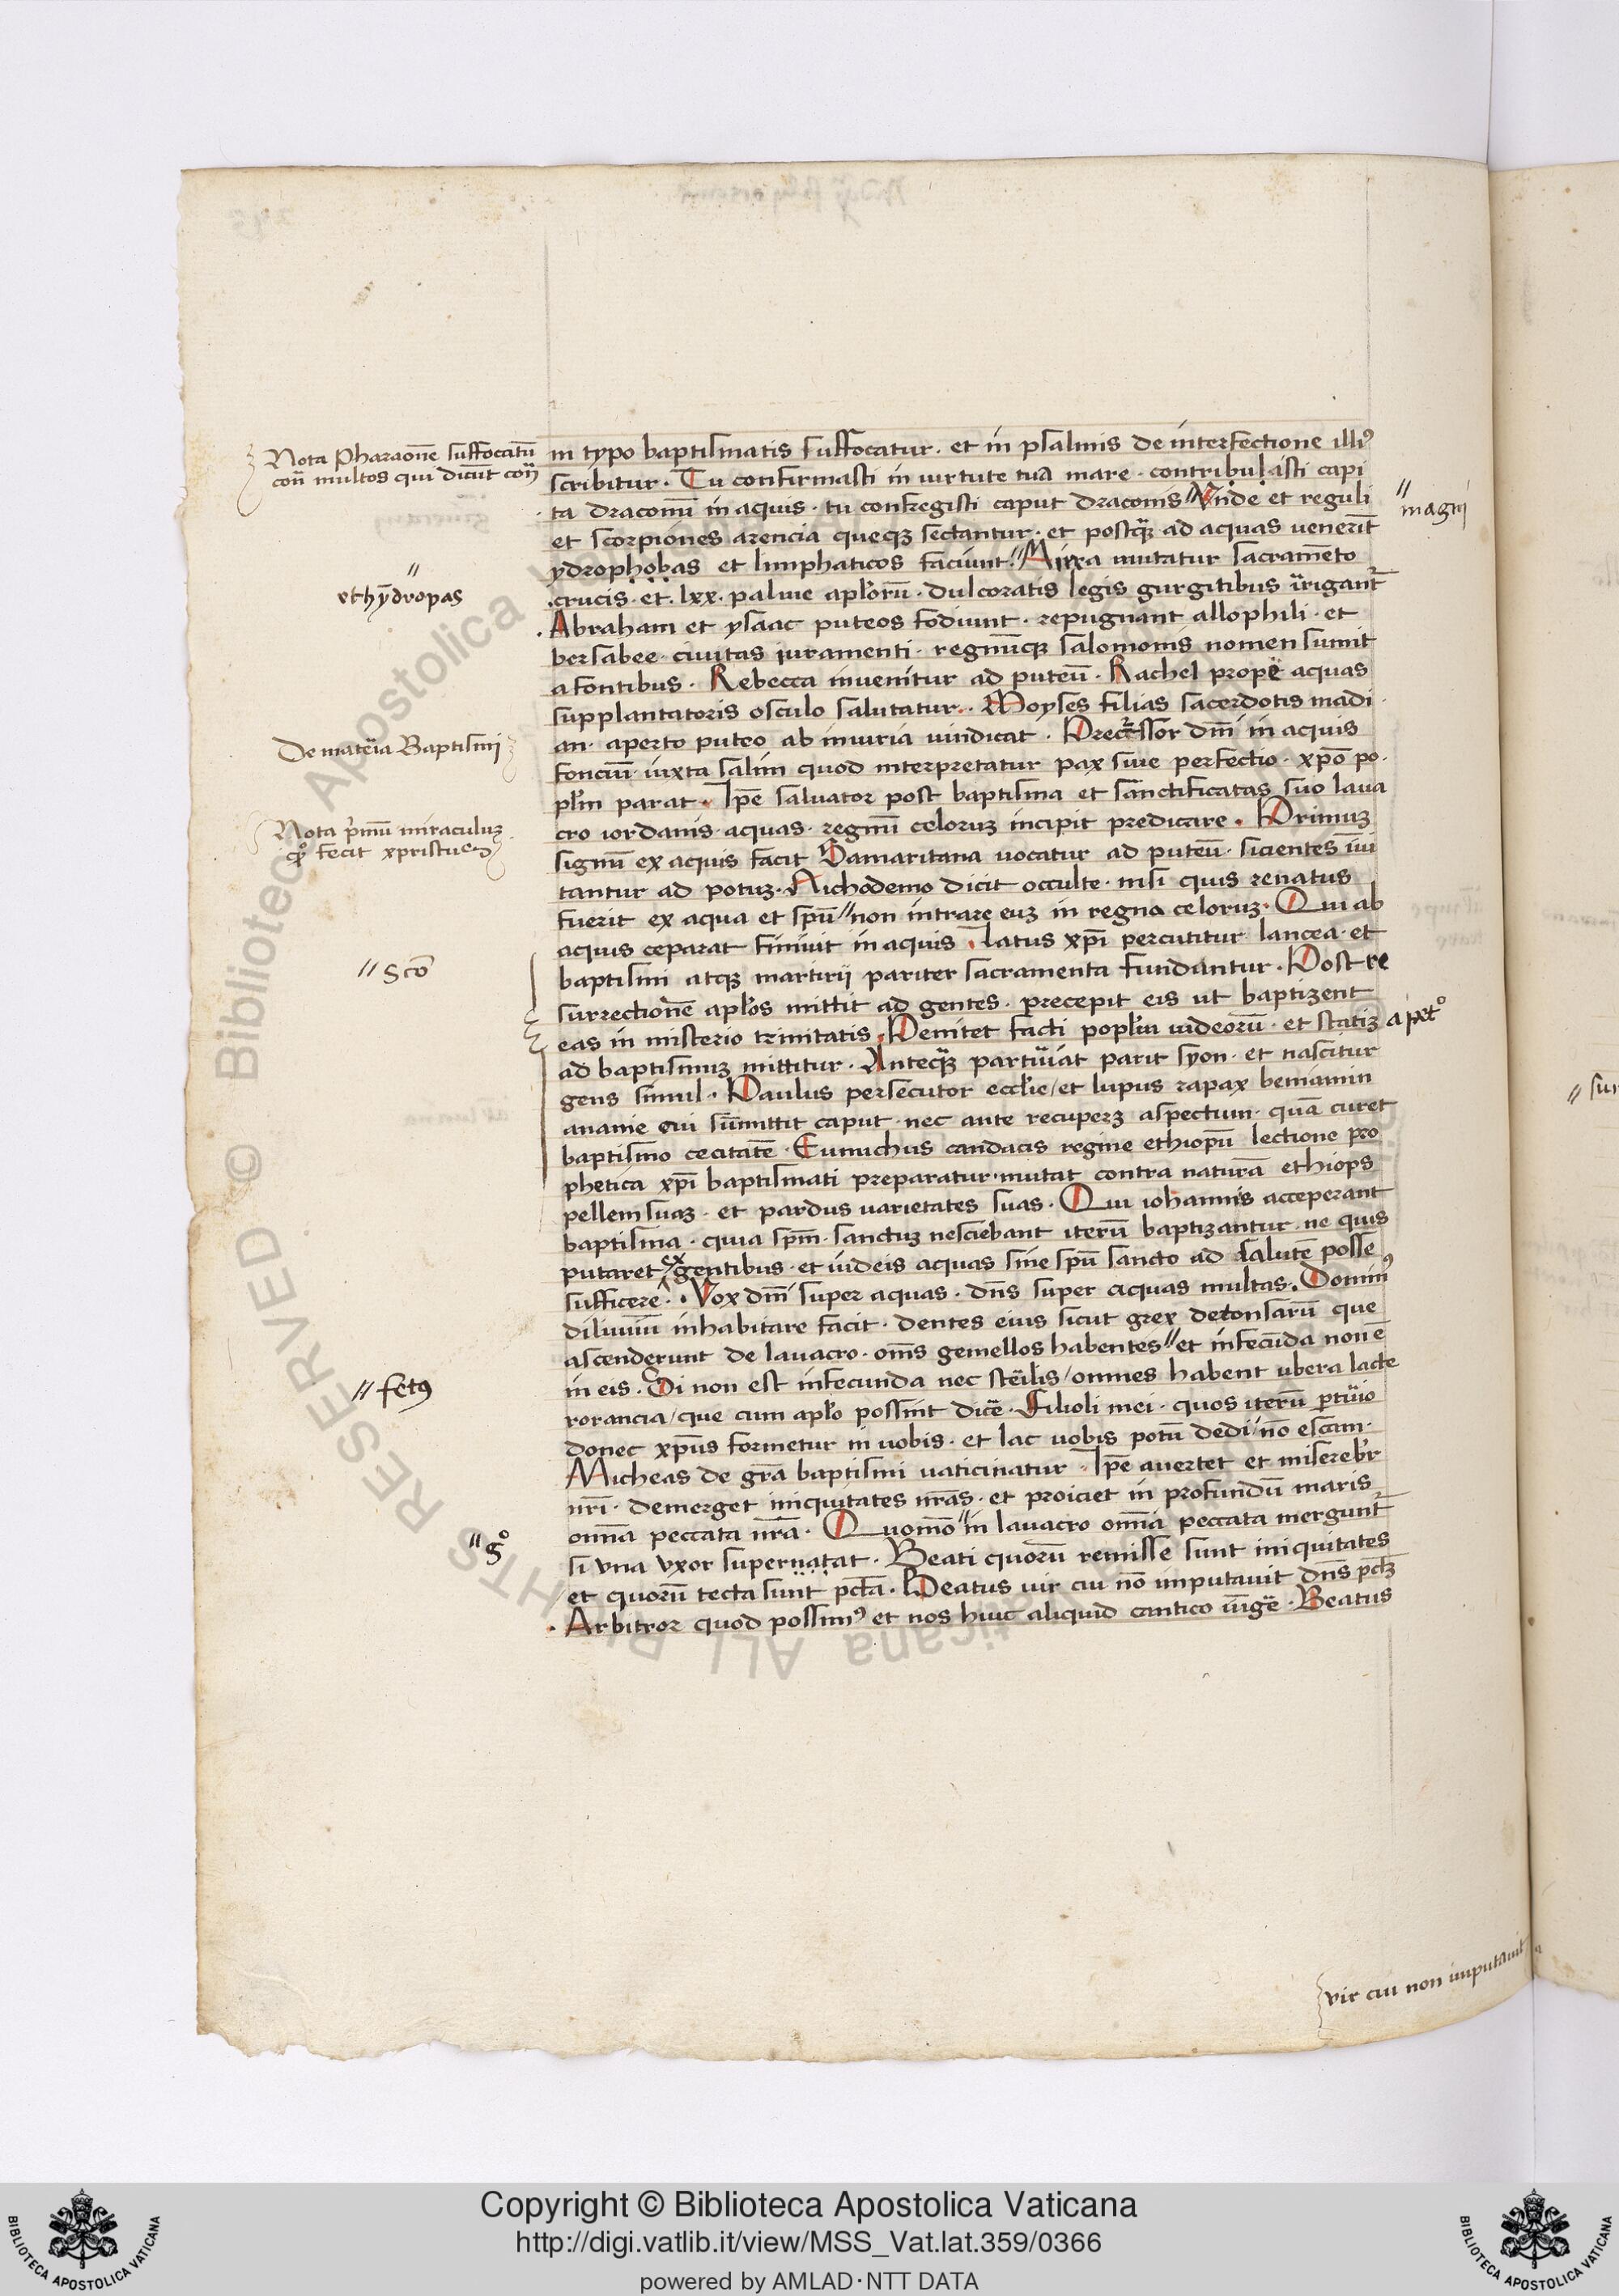 Nota Pharaonē suffocatū
con̄ multos qui dicūt con̄
in typo baptismatis suffocatur · et in psalmis de interfectione illiꝰ
scribitur · Tu confirmasti in uirtute tua mare · contribulasti capi
ta draconū in aquis · tu confregisti caput draconis // Vnde et reguli
// magni
et scorpiones arencia queqꝫ sectantur · et postqᷓ ad aquas uenerīt
ydrophobas et limphaticos faciunt · // Mirra mutatur sacramēto
//
et hydropas
crucis · et · lxx · palme apl'orū · dulcoratis legis gurgitibus irrigant̄
Abraham et ysaac puteos fodiunt · repugnant allophili · et
bersabee · ciuitas iuramenti · regnūqꝫ salomonis nomen sumit
a fontibus · Rebecca inuenitur ad puteū · Rachel prope aquas
supplantatoris osculo salutatur · Moyses filias sacerdotis madi
an · aperto puteo ab iniuria uindicat · Precᷓssor dm̄ in aquis
De mateīa Baptismi
fonciū iuxta salim quod interpretatur pax siue perfectio · xp̄o po
pl'm parat · Ip̄e saluator post baptisma et sanctificatas suo laua
cro iordanis aquas · regnū celorꝫ incipit predicare · Primuꝫ
Nota p̄mū miraculuꝫ
qᵒ fecit xpristus
signū ex aquis facit Samaritana uocatur ad puteū · sicientes īui
tantur ad potuꝫ · Nichodemo dicit occulte · nisi quis renatus
fuerit ex aqua et spū // non intrare euꝫ in regna celoruꝫ · Qui ab
aquis ceparat finiuit in aquis · Latus xp̄i percutitur lancea · et
// sco
baptismi atqꝫ martirij pariter sacramenta fundantur · Post re
surrectionē apl'os mittit ad gentes · precepit eis ut baptizent
eas in misterio trinitatis · Penitet facti popl'm iudeorū · et statiꝫ a petᵒ
ad baptismuꝫ mittitur · Anteqᷓ parturiat parit syon · et nascitur
gens simul · Paulus persecutor eccl'ie / et lupus rapax beniamin
ananie oui sūmittit caput · nec ante recuperꝫ aspectum · quā curet
baptismo cecitatē · Eunuchus candacis regine ethiopū lectione pro
phetica xp̄i baptismati preparatur · mutat contra naturā ethiops
pellem suaꝫ · et pardus uarietates suas · Qui iohannis acceperant
baptisma · quia sp̄m · sanctuꝫ nesciebant iterū baptizantur · ne quis
putaret ex gentibus · et iudeis aquas sine spū sancto ad salutē posse
sufficere · Vox dm̄ super aquas · dn̄s super aquas multas · Dominꝰ
diluuiū inhabitare facit · dentes eius sicut grex detonsarū que
ascenderunt de lauacro · om̄s gemellos habentes // et infecūda non ē
// fetꝰ
in eis · Si non est infecunda nec steilis / omnes habent ubera lacte
rorancia / que cum apl'o possint dicē · Filioli mei · quos iterū p̄tuio
donec xp̄us formetur in uobis · et lac uobis potū dedi / nō escam ·
Micheas de grā baptismi uaticinatur · Ip̄e auertet et misereb'r
nr̄i · demerget iniquitates nr̄as · et proiciet in profundū maris
omīa peccata nr̄a · Quomō // in lauacro omīa peccata mergunt̄
// gᵒ
si vna vxor supernatat · Beati quorū remisse sunt iniquitates
et quorū tecta sunt pctā · Beatus uir cui nō imputauit dn̄s pctꝫ
Arbitror quod possimꝰ et nos huic aliquid cantico iūgē · Beatus
vir cui non imputauit
Copyright © Biblioteca Apostolica Vaticana
http://digi.vatlib.it/view/MSS_Vat.lat.359/0366
powered by AMLAD·NTT DATA
BIBLIOTECA APOSTOLICA VATICANA
BIBLIOTECA APOSTOLICA VATICANA
Biblioteca Apostolica Vaticana ALL RIGHTS RESERVED ©